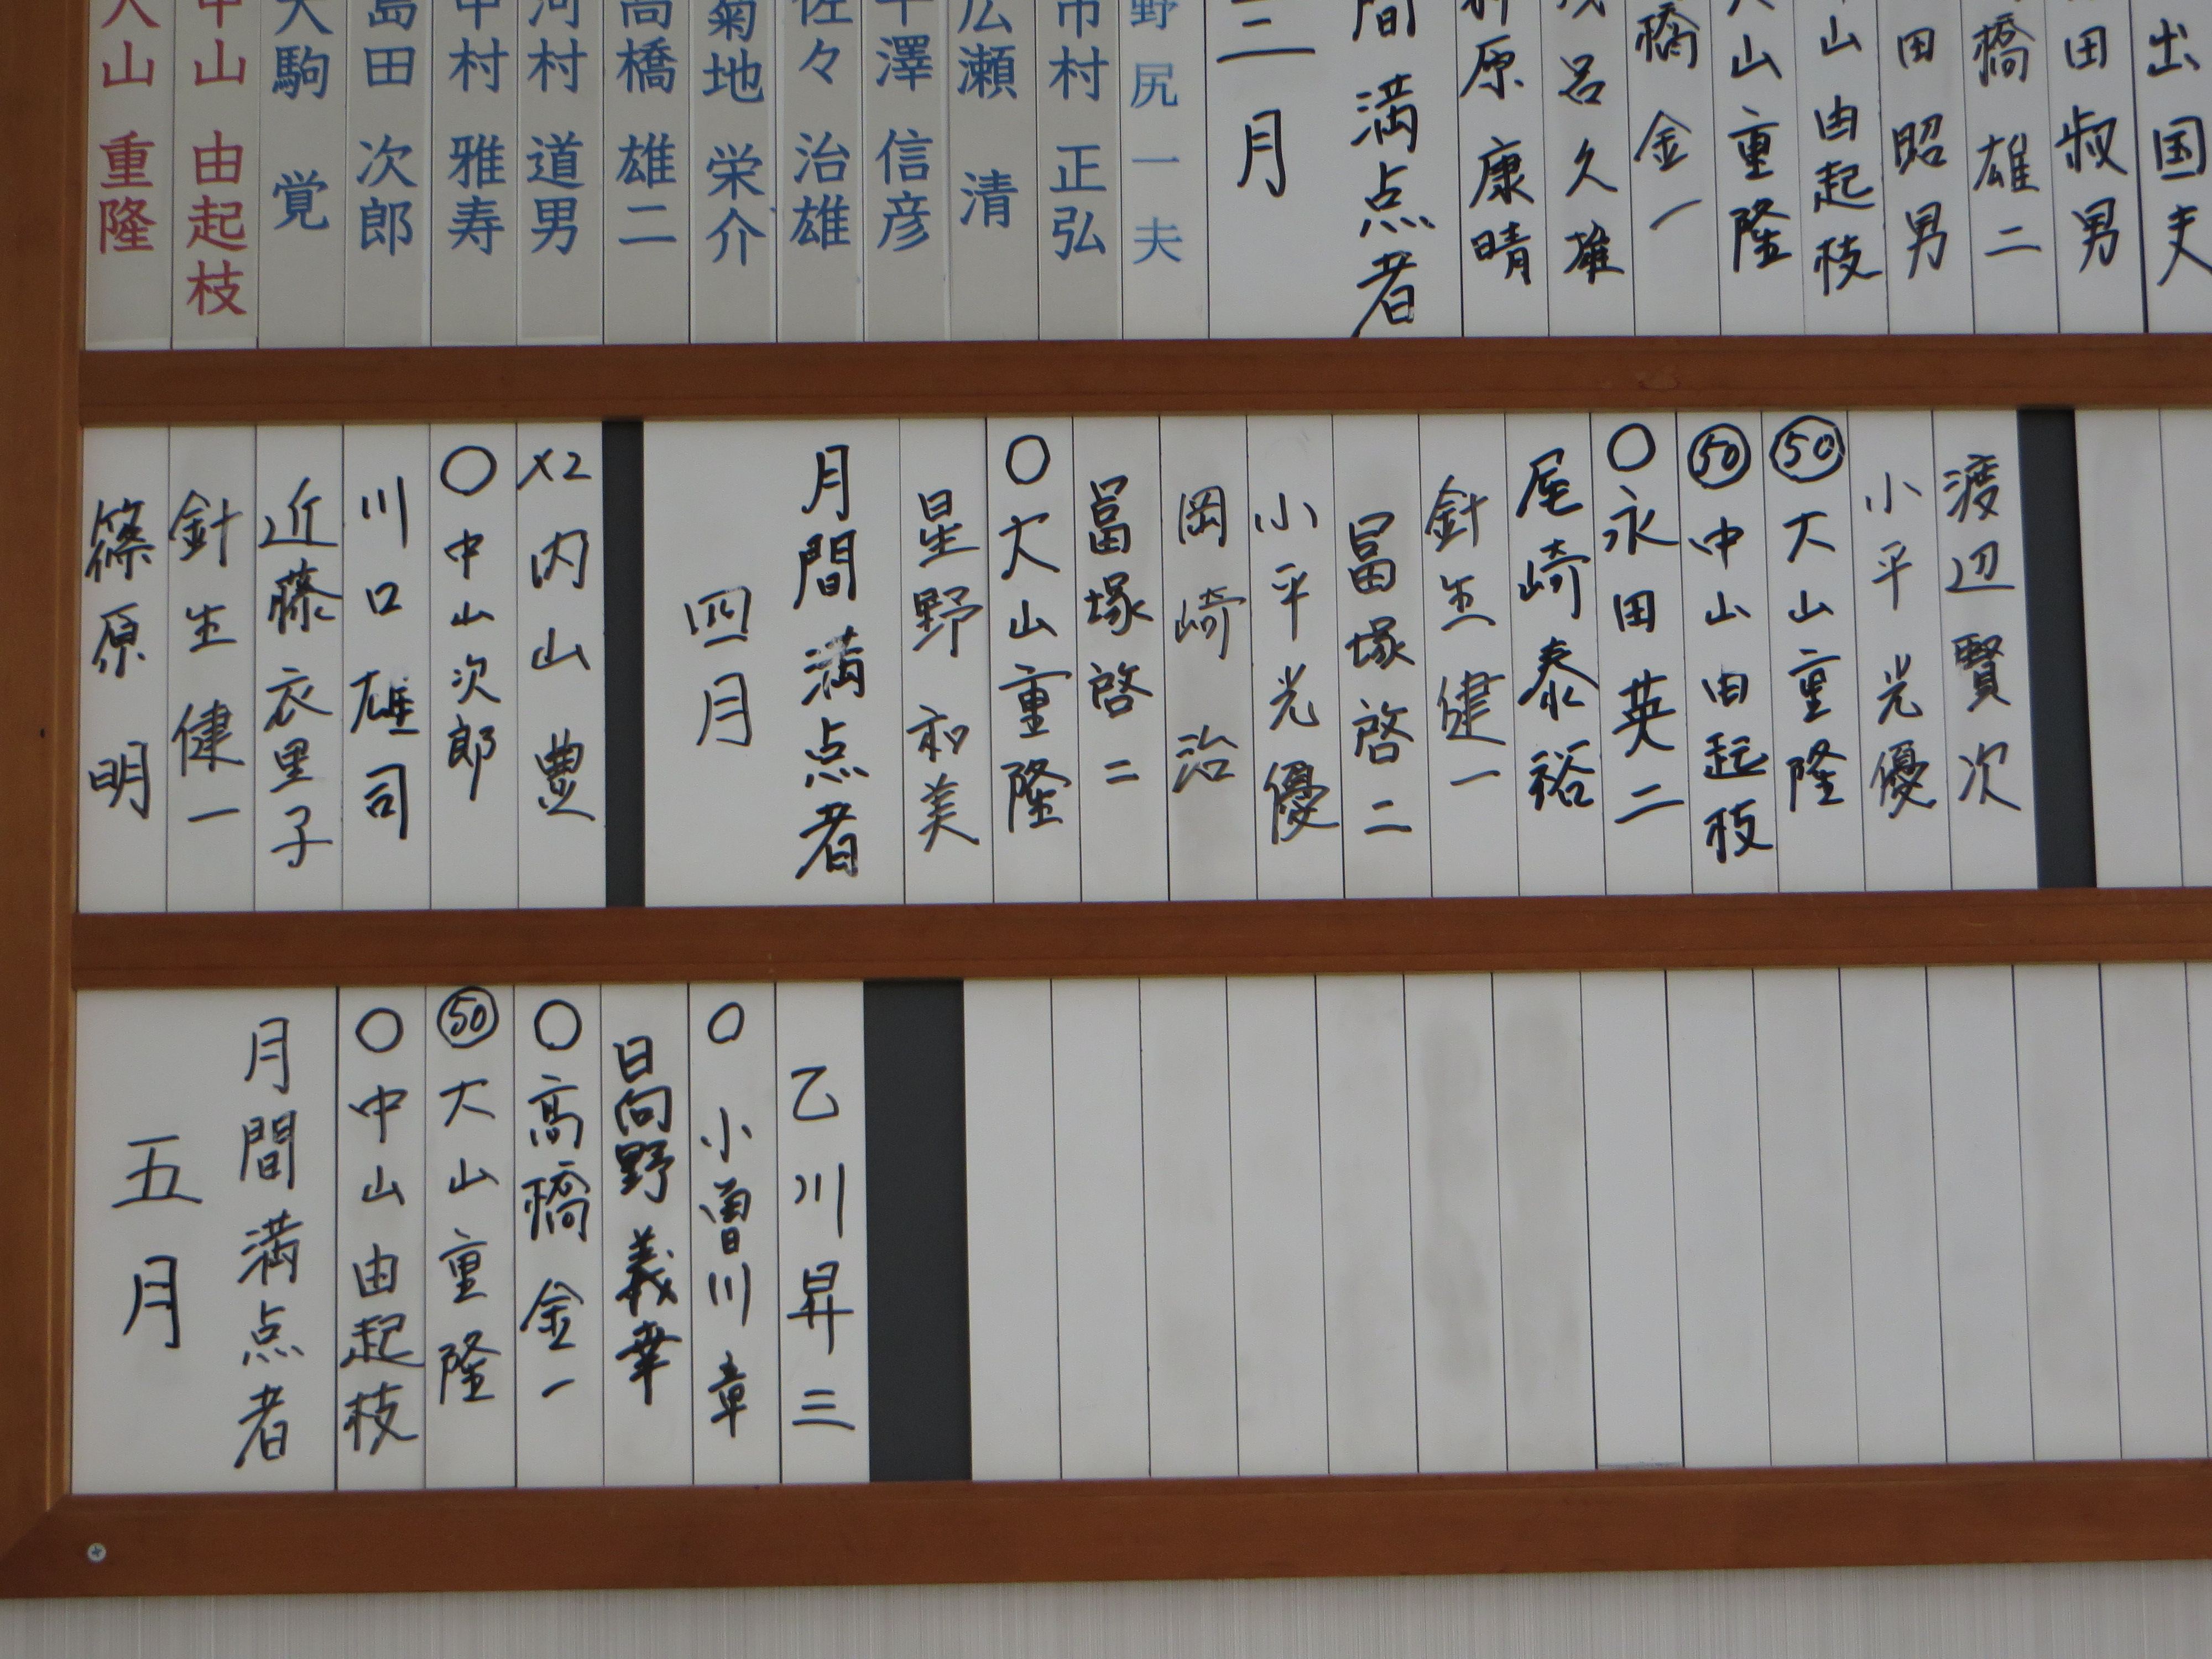 出国夫
田叔男
橋雄二
田昭男
山由起枝
山重隆
橋金一
呂久雄
原康晴
間満点者
月
野尻一夫
市村正弘
広瀬 清
澤信彦
佐々治雄
菊地栄介
高橋雄二
河村道男
中村雅寿
島田次郎
大駒 覚
中山由起枝
大山重隆
渡辺賢次
小平光優
㊿大山重隆
㊿中山由起枝
○永田英二
尾崎泰裕
針生健一
冨塚啓二
小平光優
岡崎 治
冨塚啓二
○大山重隆
星野和美
月間満点者
四月
X2内山 豊
○中山次郎
川口雄司
近藤衣里子
針生健一
篠原 明
乙川昇三
○小曽川章
日向野義幸
○高橋金一
㊿大山重隆
○中山由起枝
月間満点者
五月